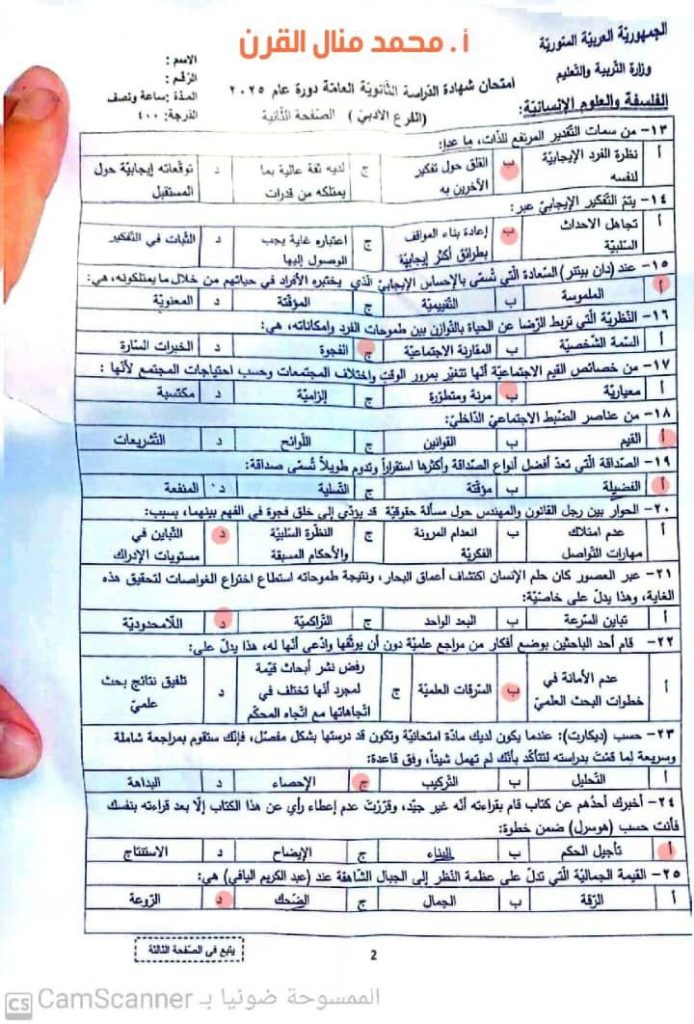 أ. محمد منال القرن
الجمهوريّة العربيّة السّوريّة
وزارة التّربية والتّعليم
الفلسفة والعلوم الإنسانيّة:
امتحان شهادة الدّراسة الثّانويّة العامّة دورة عام ٢٠٢٥
(الفرع الأدبيّ) الصّفحة الثّانية
الاسم :
الرّقم :
المدّة : ساعة ونصف
الدرجة: ٤٠٠
١٣- من سمات التّقدير المرتفع للذّات، ما عدا:
أ نظرة الفرد الإيجابيّة لنفسه ب القلق حول تفكير الآخرين به ج لديه ثقة عالية بما يمتلكه من قدرات د توقّعاته إيجابيّة حول المستقبل
١٤- يتمّ التّفكير الإيجابيّ عبر:
أ تجاهل الاحداث السّلبيّة ب إعادة بناء المواقف بطرائق أكثر إيجابيّة ج اعتباره غاية يجب الوصول إليها د الثّبات في التّفكير
١٥- عند (دان بيتنر) السّعادة الّتي تُسمّى بالإحساس الإيجابيّ الذي يختبره الأفراد في حياتهم من خلال ما يمتلكونه، هي:
أ الملموسة ب التّقييميّة ج المؤقّتة د المعنويّة
١٦- النّظريّة الّتي تربط الرّضا عن الحياة بالتّوازن بين طموحات الفرد وإمكاناته، هي:
أ السّمة الشّخصيّة ب المقارنة الاجتماعيّة ج الفجوة د الخبرات السّارة
١٧- من خصائص القيم الاجتماعيّة أنّها تتغيّر بمرور الوقت واختلاف المجتمعات وحسب احتياجات المجتمع لأنّها :
أ معياريّة ب مرنة ومتطوّرة ج إلزاميّة د مكتسبة
١٨- من عناصر الضّبط الاجتماعيّ الدّاخليّ:
أ القيم ب القوانين ج اللّوائح د التّشريعات
١٩- الصّداقة الّتي تعدّ أفضل أنواع الصّداقة وأكثرها استقراراً وتدوم طويلاً تُسمّى صداقة:
أ الفضيلة ب مؤقّتة ج التّسلية د المنفعة
٢٠- الحوار بين رجل القانون والمهندس حول مسألة حقوقيّة قد يؤدّي إلى خلق فجوة في الفهم بينهما، بسبب:
أ عدم امتلاك مهارات التّواصل ب انعدام المرونة الفكريّة ج النّظرة السّلبيّة والأحكام المسبقة د التّباين في مستويات الإدراك
٢١- عبر العصور كان حلم الإنسان اكتشاف أعماق البحار، ونتيجة طموحاته استطاع اختراع الغواصات لتحقيق هذه
الغاية، وهذا يدلّ على خاصيّة:
أ تباين السّرعة ب البعد الواحد ج التّراكميّة د اللّامحدوديّة
٢٢- قام أحد الباحثين بوضع أفكار من مراجع علميّة دون أن يوثّقها وادّعى أنّها له، هذا يدلّ على:
أ عدم الأمانة في خطوات البحث العلميّ ب السّرقات العلميّة ج رفض نشر أبحاث قيّمة لمجرد أنّها تختلف في اتّجاهاتها مع اتّجاه المحكّم د تلفيق نتائج بحث علميّ
٢٣- حسب (ديكارت): عندما يكون لديك مادّة امتحانيّة وتكون قد درستها بشكل مفصّل، فإنّك ستقوم بمراجعة شاملة
وسريعة لما قمْتَ بدراسته لتتأكّد بأنّك لم تهمل شيئاً، وفق قاعدة:
أ التّحليل ب التّركيب ج الإحصاء د البداهة
٢٤- أخبرك أحدُهم عن كتاب قام بقراءته أنّه غير جيّد، وقرّرْتَ عدم إعطاء رأي عن هذا الكتاب إلّا بعد قراءته بنفسك
فأنت حسب (هوسرل) ضمن خطوة:
أ تأجيل الحكم ب البناء ج الإيضاح د الاستنتاج
٢٥- القيمة الجماليّة الّتي تدلّ على عظمة النّظر إلى الجبال الشّاهقة عند (عبد الكريم اليافي) هي:
أ الرّقة ب الجمال ج الضّحك د الرّوعة
2
يتبع في الصّفحة الثّالثة
CS CamScanner الممسوحة ضوئيا بـ